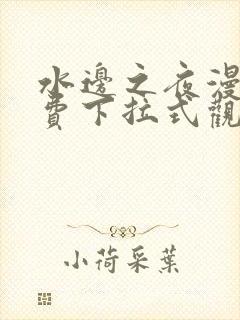 水邊之夜漫
費下拉式觀
小荷采葉